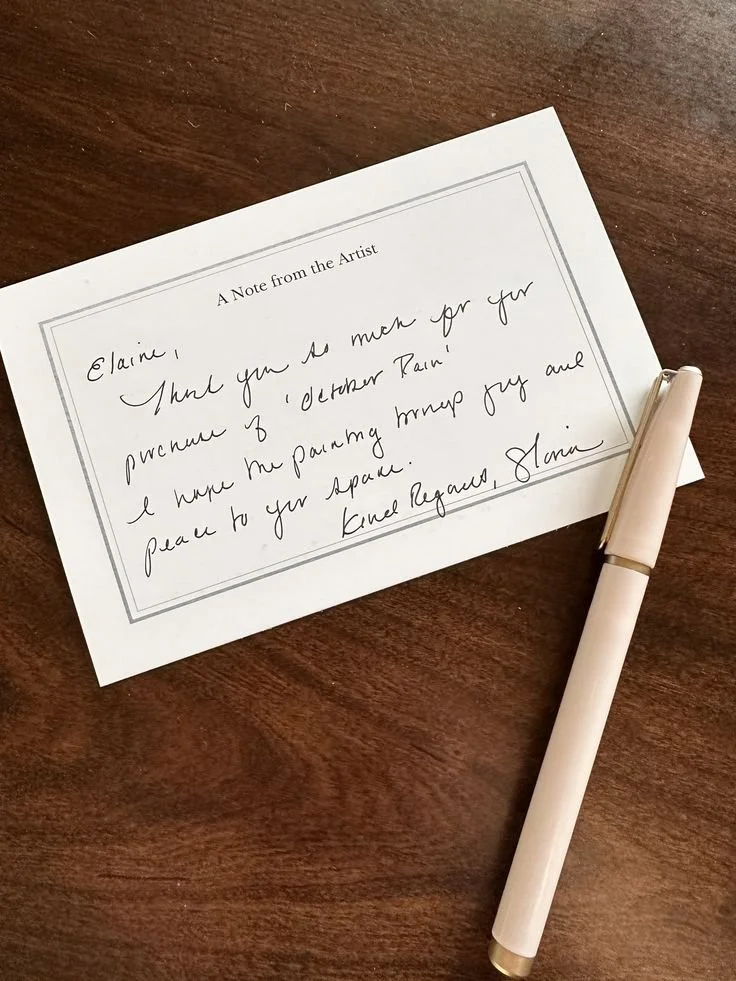 A Note from the Artist
Elaine,
Thank you so much for your
purchase of 'October Rain'
I hope the painting brings joy and
peace to your space.
Kind Regards, Gloria